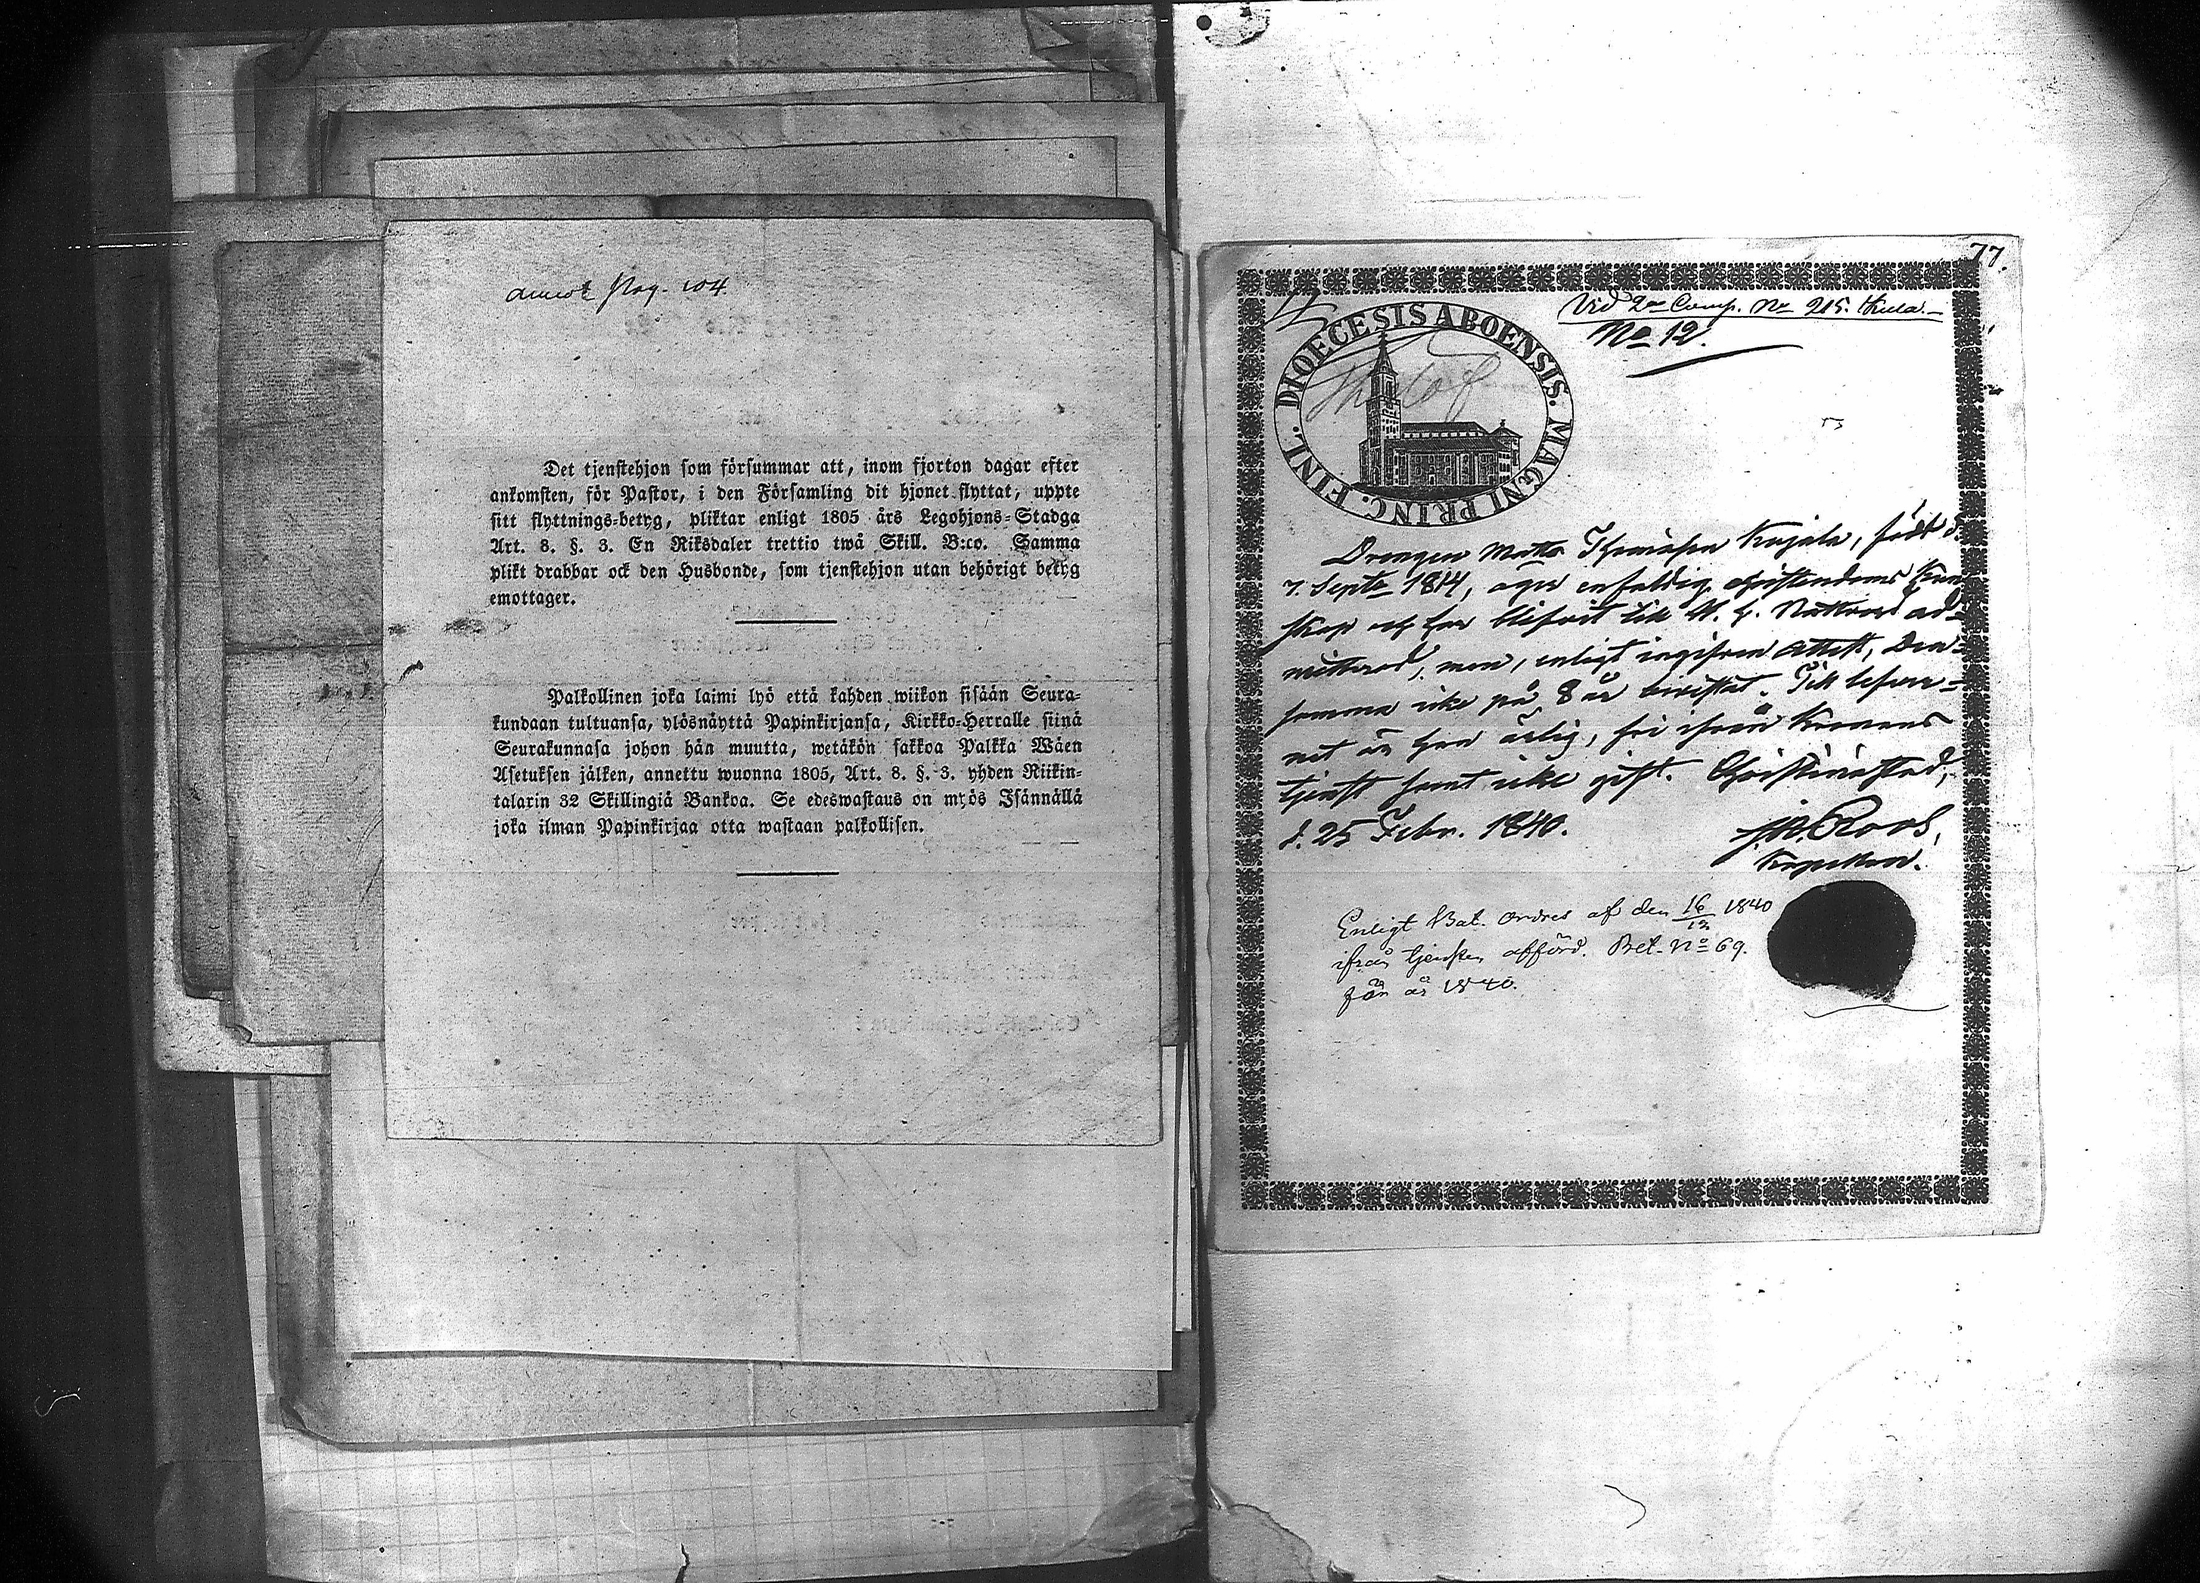 annot pag. 104
Det tjenstehjon som försummar att, inom fjorton dagar efter
ankomsten, för Pastor, i den Församling dit hjonet flyttat, uppte
sitt flyttnings-betyg, pliktar enligt 1805 års Legohjons-Stadga
Art. 8. §. 3. En Riksdaler trettio twå Skill. B:co. Samma
plikt drabbar ock den Husbonde, som tjenstehjon utan behörigt betyg
emottager.
Palkollinen joka laimi lyö että kahden wiikon sisään Seura-
kundaan tultuansa, ylösnäyttä Papinkirjansa, Kirkko-Herralle siinä
Seurakunnasa johon hän muutta, wetäkön sakkoa Palkka Wäen
Asetuksen jälken, annettu wuonna 1805, Art. 8. §. 3. yhden Riikin-
talarin 32 Skillingiä Bankoa. Se edeswastaus on myös Isännällä
joka ilman Papinkirjaa otta wastaan palkollisen.
77.
Vid 2ra Comp. No 215.
No 12.
DIOECESIS ABOENSIS. MAGNI PRINC. FINL.
Drengen Matts Thomasson Kujala, född d.
7. Septr 1814, eger enfaldig christendoms kun-
skap och har blifvit till H. H. Nattvard ad-
mitterad, men, enligt ingifven attest, den-
samma icke på 8 år bevistat. Till lefver-
net är han ärlig, fri ifrån Kronans
tjenst samt icke gift. Christinæstad,
d. 25 Febr. 1840.
Roos,
Kapellan.
Enligt Bat. Ordres af den 16/12 1840
ifrån tjensten afförd. Bet. No 69.
för år 1840.